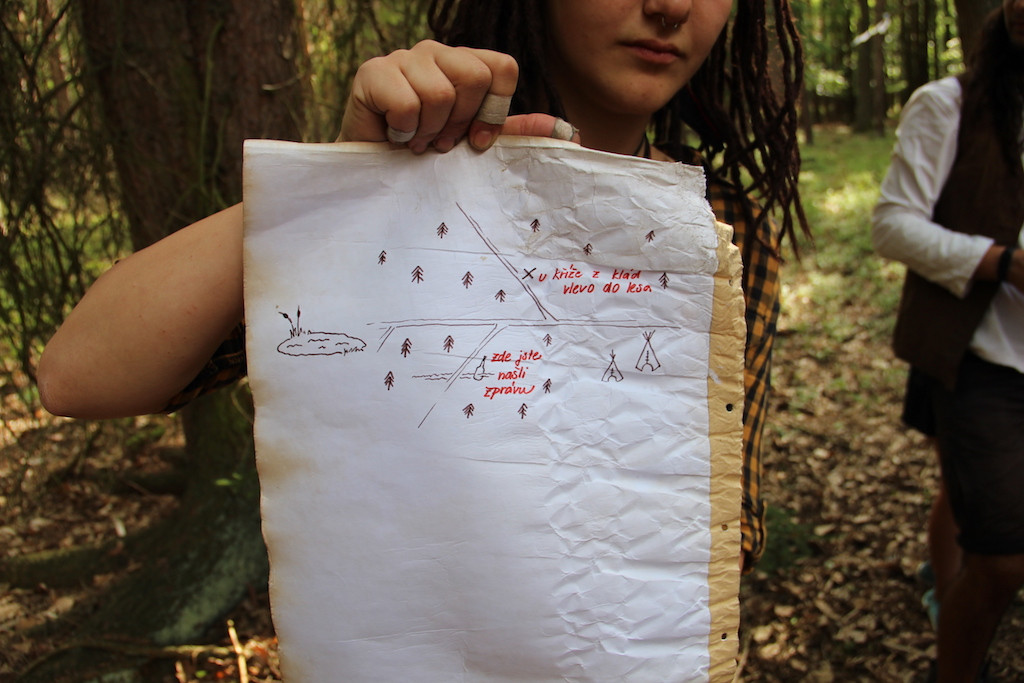 u kříže z klád
vlevo do lesa
zde jste
našli
zprávu